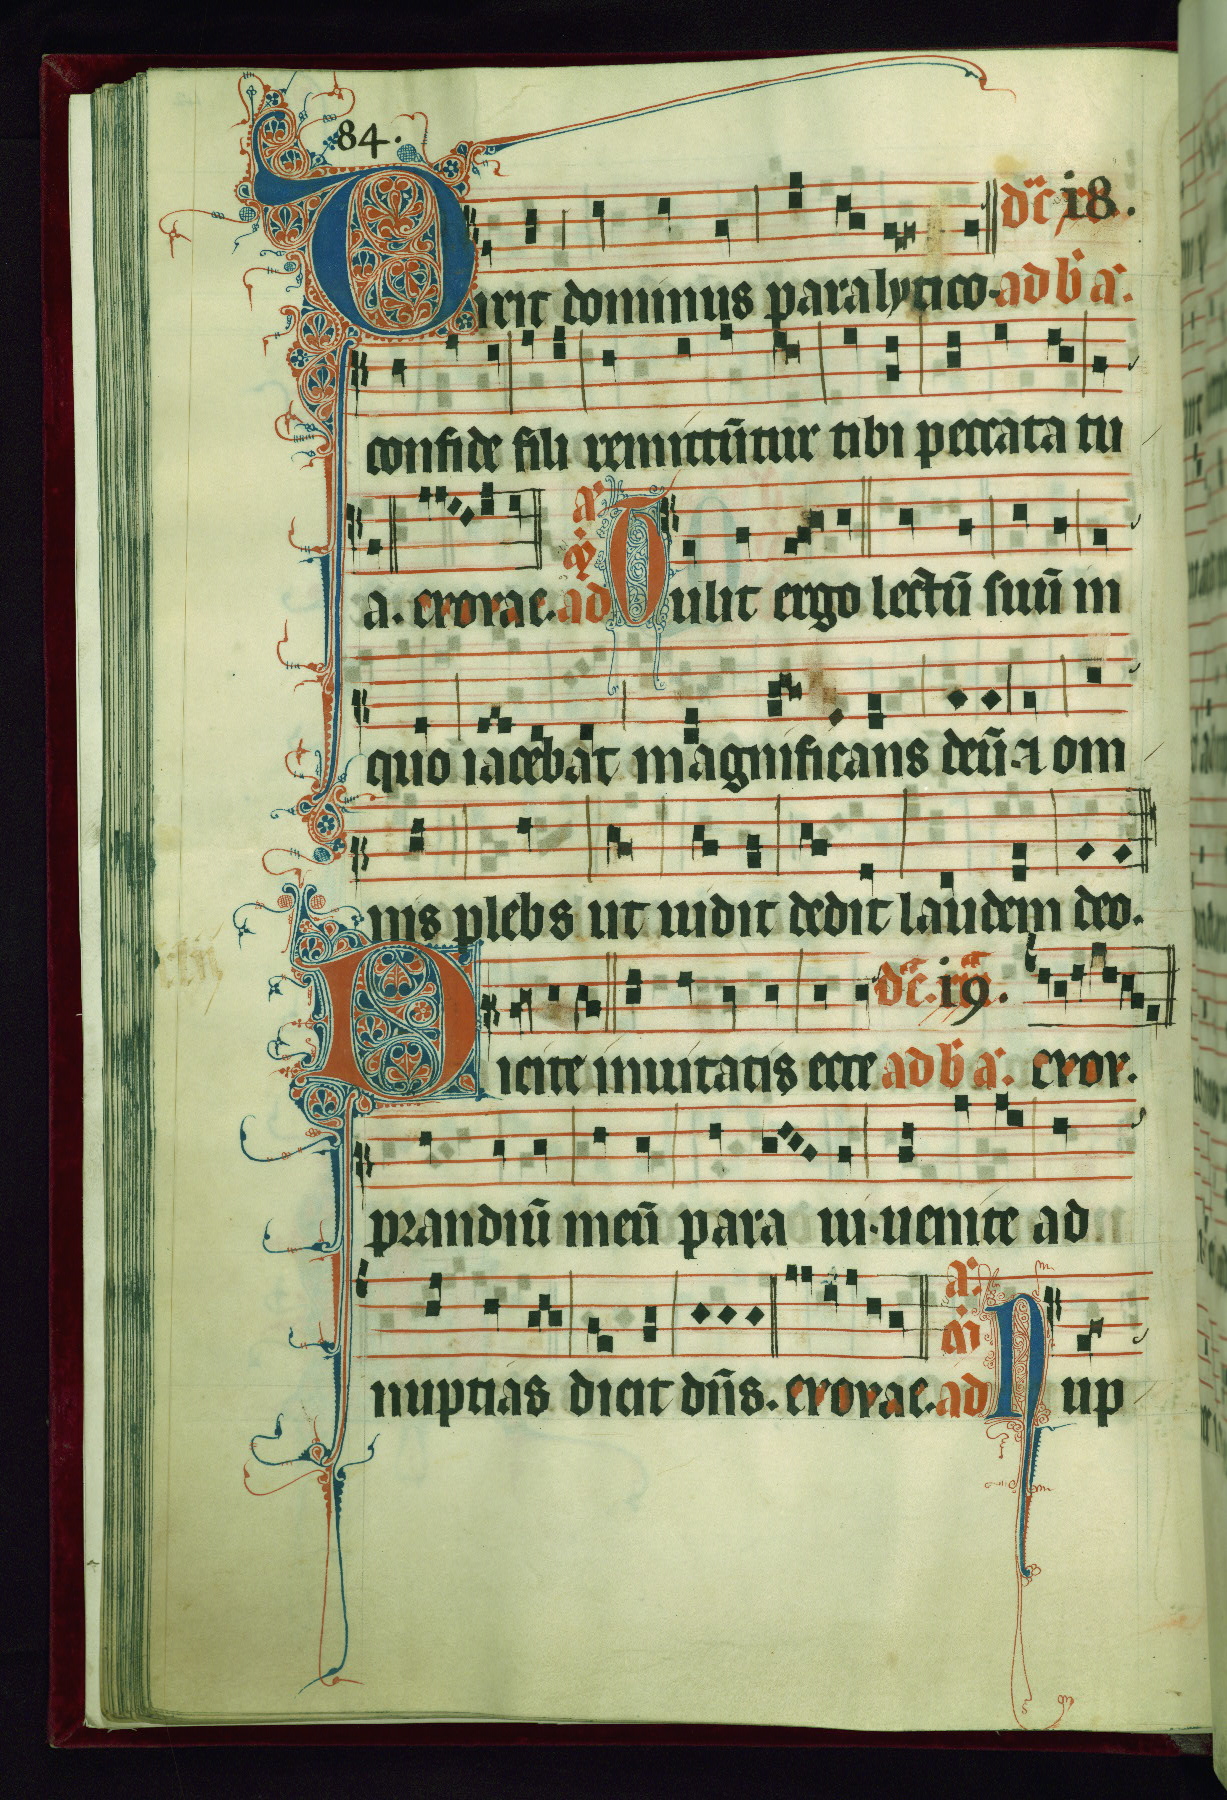 84.
dc̄ 18.
Dixit dominus paralytico. ad b̄ a.
confide fili remittūtur tibi peccata tu
a. euouae. ad m̄ a. Tulit ergo lectū suū in
quo iacebat magnificans deū. ⁊ om
nis plebs ut uidit dedit laudem deo.
dc̄a. 19.
Dicite inuitatis ecce ad b̄ a. euou.
prandiū meū para ui. uenite ad
nuptias dicit dn̄s. euouae. ad m̄ a. Nup